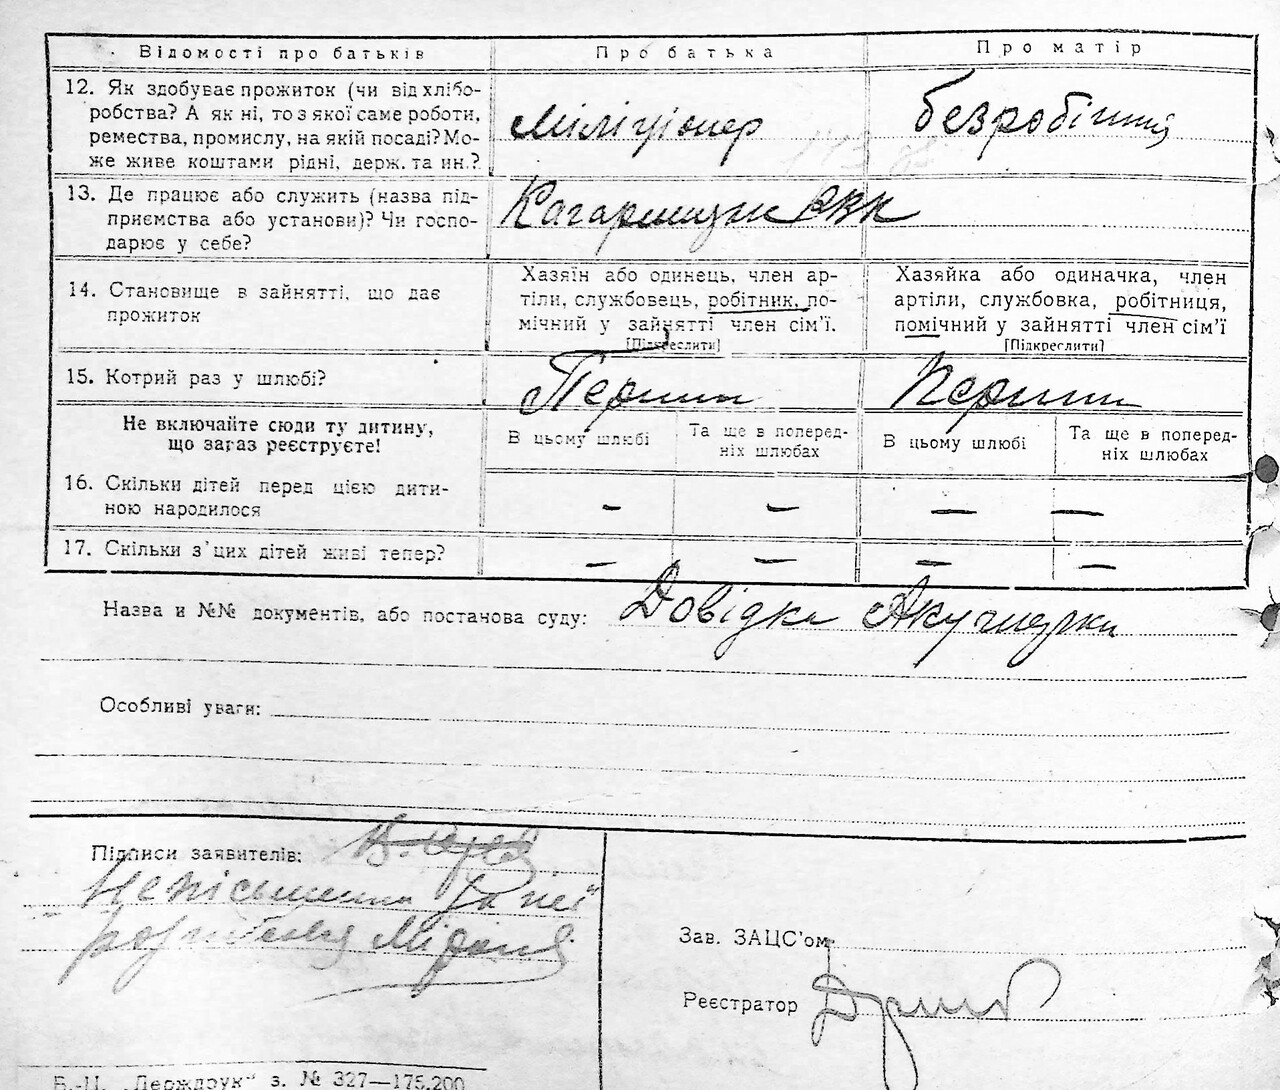 Відомості про батьків Про батька Про матір
12. Як здобуває прожиток (чи від хлібо-
робства? А як ні, то з якої саме роботи,
ремества, промислу, на якій посаді? Мо-
же живе коштами рідні, держ. та ин.?
Міліціонер
безробітний
13. Де працює або служить (назва під-
приємства або установи)? Чи госпо-
дарює у себе?
РВК
14. Становище в зайнятті, що дає
прожиток
Хазяїн або одинець, член ар-
тіли, службовець, робітник, по-
мічний у зайнятті член сім'ї.
[Підкреслити]
Хазяйка або одиначка, член
артіли, службовка, робітниця,
помічний у зайнятті член сім'ї
[Підкреслити]
15. Котрий раз у шлюбі?
Перший
Перший
Не включайте сюди ту дитину,
що зараз реєструєте!
В цьому шлюбі
Та ще в поперед-
ніх шлюбах
В цьому шлюбі
Та ще в поперед-
ніх шлюбах
16. Скільки дітей перед цією дити-
ною народилося
– – — —
17. Скільки з'цих дітей живі тепер?
– – – —
Назва и №№ документів, або постанова суду: Довідка Акушерки
Особливі уваги:
Підписи заявителів:
Неписьменна За неї
розписався
Зав. ЗАЦС'ом
Реєстратор
Б.-Ц. „Держдрук" з. № 327—175.200